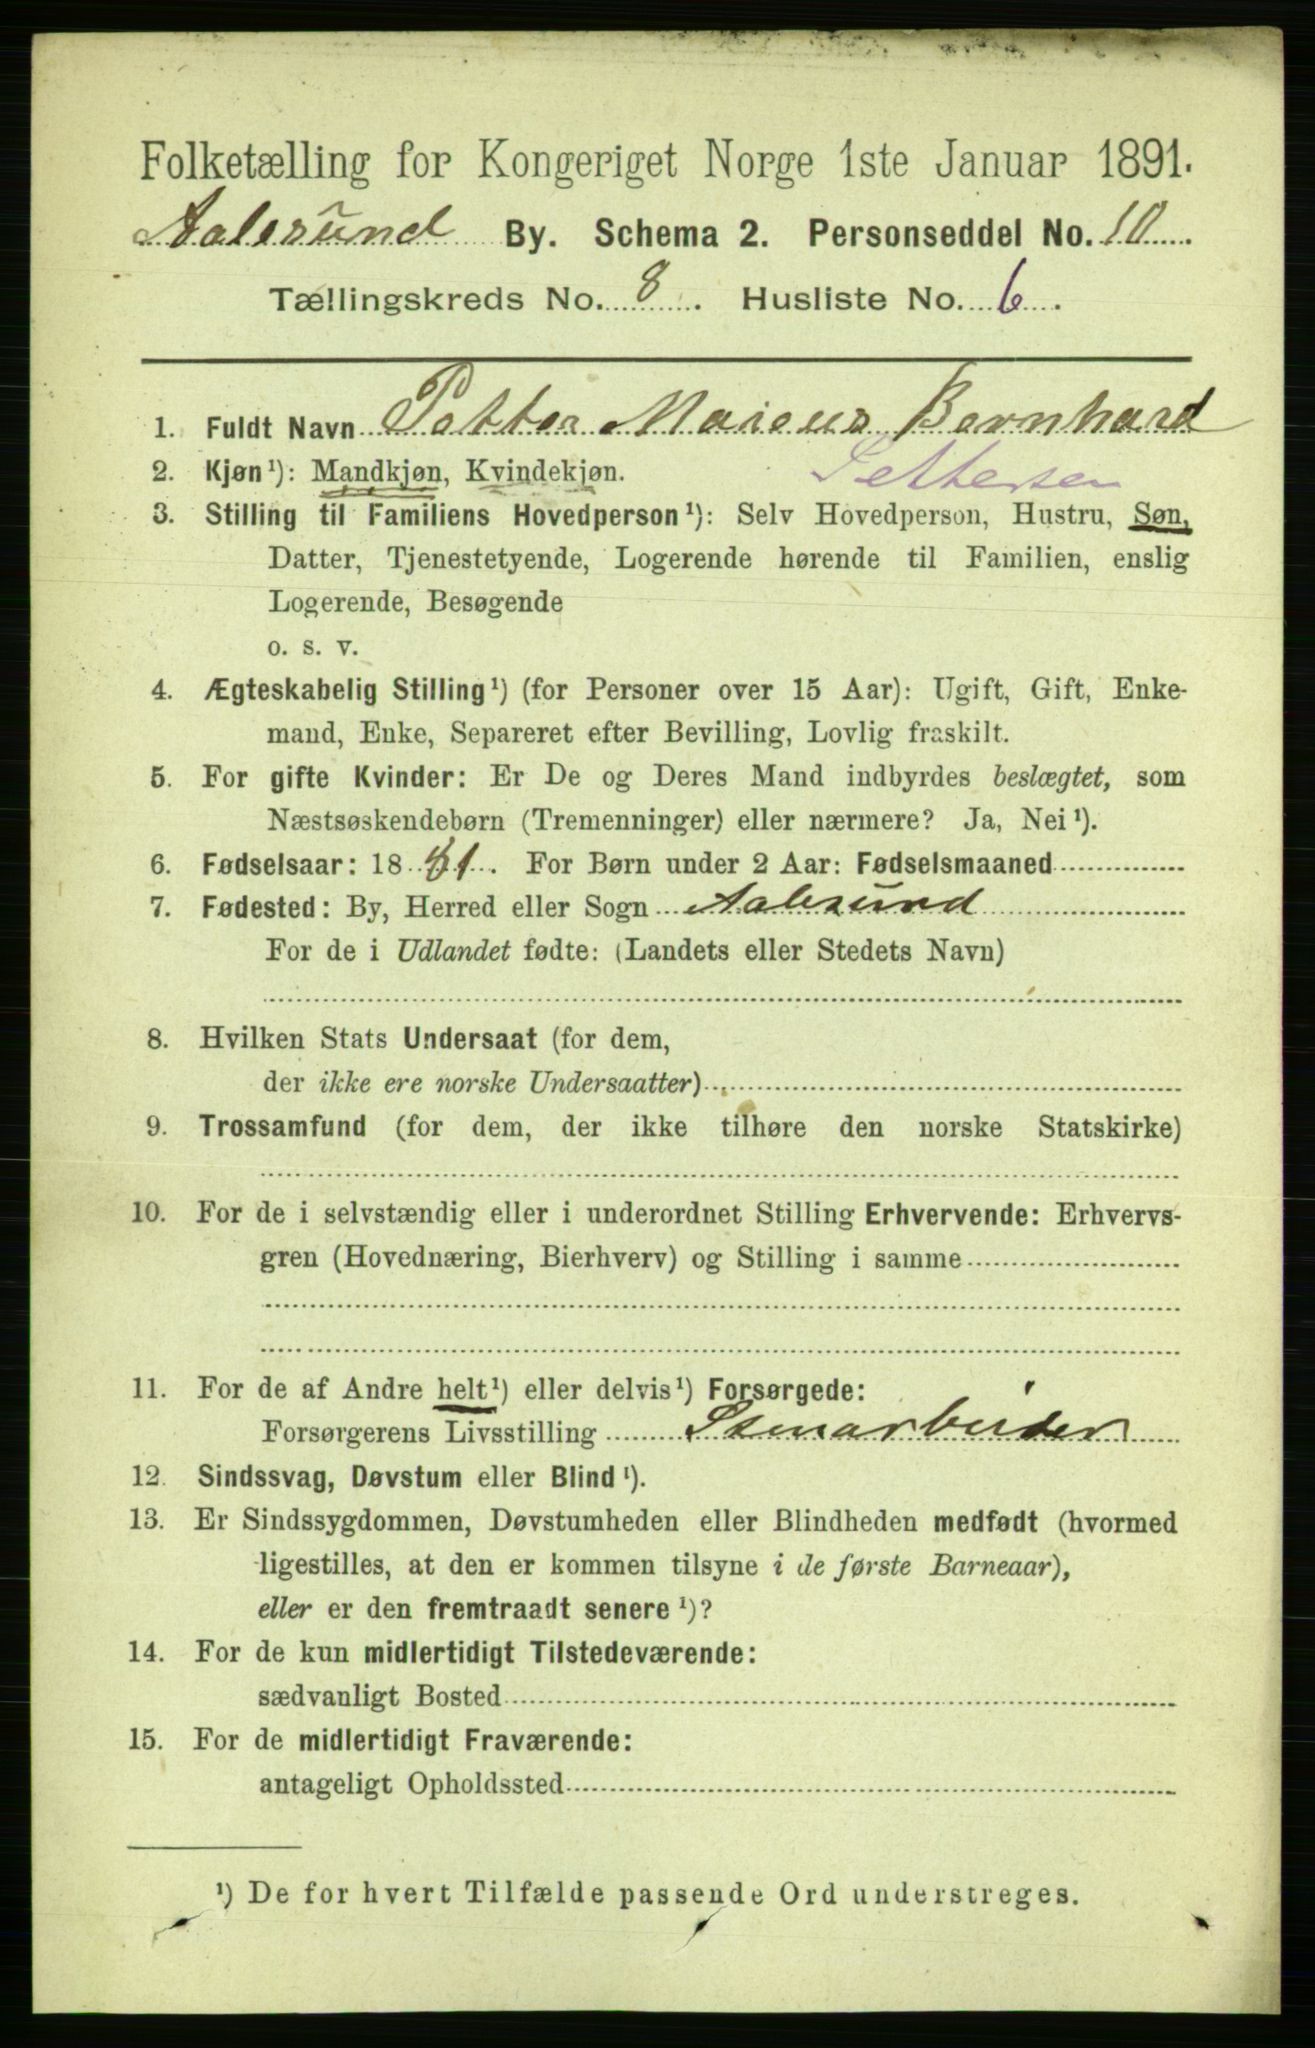 Folketælling for Kongeriget Norge 1ste Januar 1891.
Aalesund By. Schema 2. Personseddel No. 10
Tællingskreds No. 8. Husliste No. 6.
1. Fuldt Navn Petter Marius Bernhard
Pettersen
2. Kjøn¹): Mandkjøn, Kvindekjøn.
3. Stilling til Familiens Hovedperson¹): Selv Hovedperson, Hustru, Søn,
Datter, Tjenestetyende, Logerende hørende til Familien, enslig
Logerende, Besøgende
o. s. v.
4. Ægteskabelig Stilling¹) (for Personer over 15 Aar): Ugift, Gift, Enke-
mand, Enke, Separeret efter Bevilling, Lovlig fraskilt.
5. For gifte Kvinder: Er De og Deres Mand indbyrdes beslægtet, som
Næstsøskendebørn (Tremenninger) eller nærmere? Ja, Nei¹).
6. Fødselsaar: 1881. For Børn under 2 Aar: Fødselsmaaned
7. Fødested: By, Herred eller Sogn Aalesund
For de i Udlandet fødte: (Landets eller Stedets Navn)
8. Hvilken Stats Undersaat (for dem,
der ikke ere norske Undersaatter)
9. Trossamfund (for dem, der ikke tilhøre den norske Statskirke)
10. For de i selvstændig eller i underordnet Stilling Erhvervende: Erhvervs-
gren (Hovednæring, Bierhverv) og Stilling i samme
11. For de af Andre helt¹) eller delvis¹) Forsørgede:
Forsørgerens Livsstilling Stenarbeider
12. Sindssvag, Døvstum eller Blind¹).
13. Er Sindssygdommen, Døvstumheden eller Blindheden medfødt (hvormed
ligestilles, at den er kommen tilsyne i de første Barneaar),
eller er den fremtraadt senere¹)?
14. For de kun midlertidigt Tilstedeværende:
sædvanligt Bosted
15. For de midlertidigt Fraværende:
antageligt Opholdssted
¹) De for hvert Tilfælde passende Ord understreges.